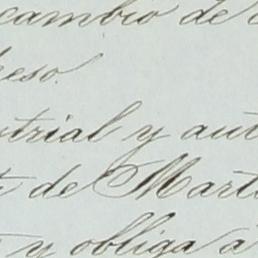 cambio de
eso.
trial y aut
de Mart
y obliga á